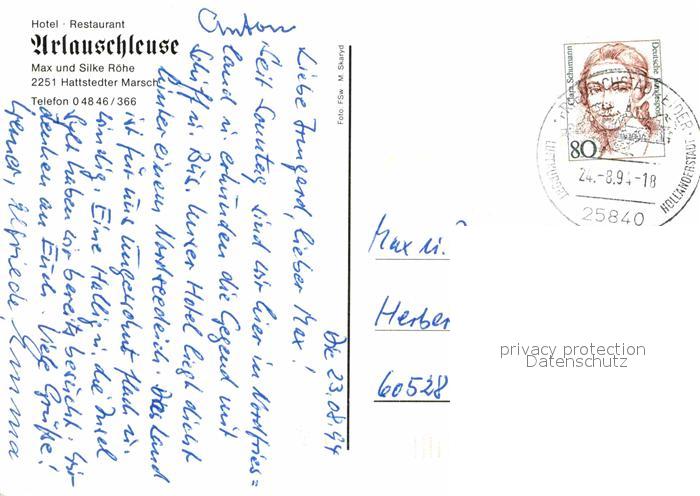 Hotel · Restaurant
Arlauschleuse
Max und Silke Röhe
2251 Hattstedter Marsch
Telefon 0 48 46 / 366
Foto: FSw M. Skaryd
Die 23.08.94
Liebe Irmgard, lieber Max!
Seit Sonntag sind wir hier in Nordfries=
land u. erkunden die Gegend mit
Schiff u. Bus. Unser Hotel liegt dicht
hinter einem Nordseedeich. Das Land
ist für uns ungewohnt flach u.
windig. Eine Hallig u. die Insel
Sylt haben wir bereits besucht. Wir
denken an Euch. Viele Grüße!
Werner, Elfriede, Emma
Anton
Max u.
Herber
60528
Clara Schumann
Deutsche Bundespost
80
24.-8.94-18
LUFTKURORT
HOLLÄNDERSTADT
25840
privacy protection
Datenschutz